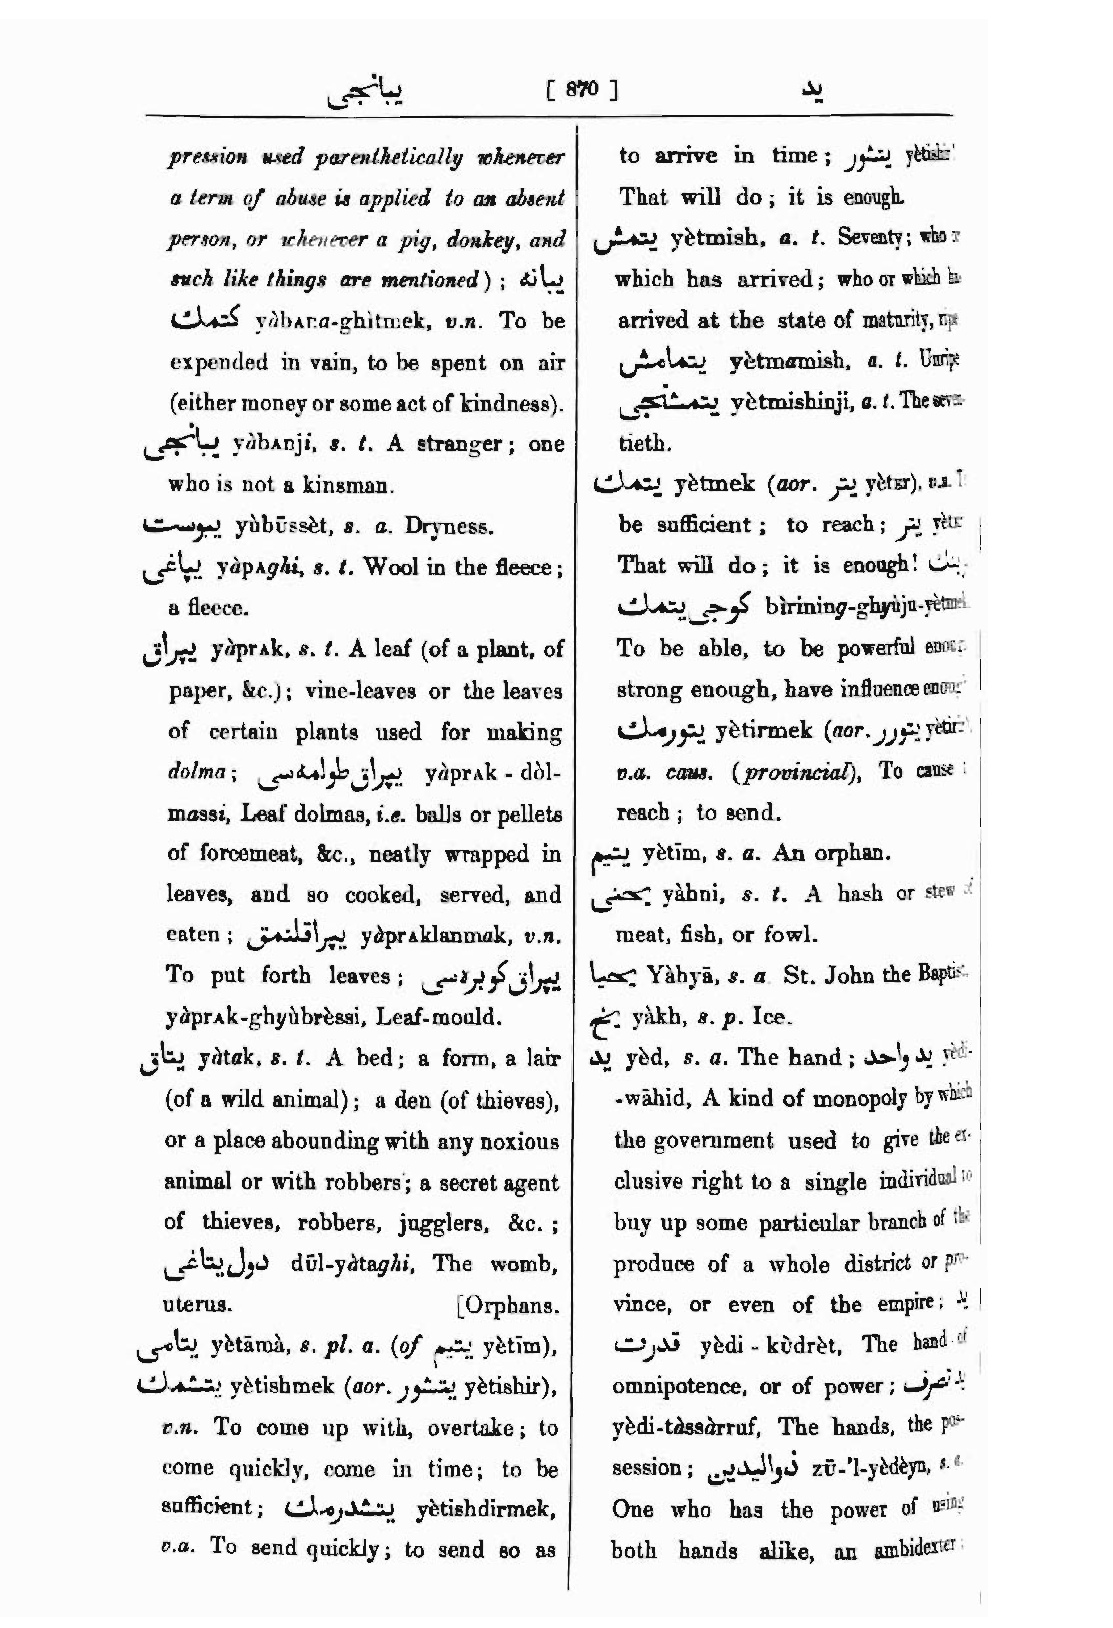 يبانجى [ 870 ] يد
pression used parenthetically whenever
a term of abuse is applied to an absent
person, or whenever a pig, donkey, and
such like things are mentioned) ; يبانه
كتمك yàbᴀna-ghìtmek, v.n. To be
expended in vain, to be spent on air
(either money or some act of kindness).
يبانجى yàbᴀnji, s. t. A stranger ; one
who is not a kinsman.
يبوست yùbūssèt, s. a. Dryness.
يپاغى yàpᴀghi, s. t. Wool in the fleece ;
a fleece.
يپراق yàprᴀk, s. t. A leaf (of a plant, of
paper, &c.) ; vine-leaves or the leaves
of certain plants used for making
dolma ; يپراق طولمەسى yàprᴀk - dòl-
massi, Leaf dolmas, i.e. balls or pellets
of forcemeat, &c., neatly wrapped in
leaves, and so cooked, served, and
eaten ; يپراقلنمق yàprᴀklanmak, v.n.
To put forth leaves ; يپراق كوبرەسى
yàprᴀk-ghyùbrèssi, Leaf-mould.
يتاق yàtak, s. t. A bed ; a form, a lair
(of a wild animal) ; a den (of thieves),
or a place abounding with any noxious
animal or with robbers ; a secret agent
of thieves, robbers, jugglers, &c. ;
دول يتاغى dūl-yàtaghi, The womb,
uterus. [Orphans.
يتامى yètāmà, s. pl. a. (of يتيم yètīm),
يتشمك yètishmek (aor. يتشور yètishir),
v.n. To come up with, overtake ; to
come quickly, come in time ; to be
sufficient ; يتشدرمك yètishdirmek,
v.a. To send quickly ; to send so as
to arrive in time ; يتشور yètishir
That will do ; it is enough.
يتمش yètmish, a. t. Seventy ; who or
which has arrived ; who or which has
arrived at the state of maturity, ripe
يتمامش yètmamish, a. t. Unripe
يتمشنجى yètmishinji, a. t. The seven-
tieth.
يتمك yètmek (aor. يتر yètᴇr), v.n. To
be sufficient ; to reach ; يتر yètᴇr
That will do ; it is enough!
كوجى يتمك bìrining-ghyùju-yètmek
To be able, to be powerful enough
strong enough, have influence enough
يتورمك yètirmek (aor. يتورر yètirir)
v.a. caus. (provincial), To cause
reach ; to send.
يتيم yètīm, s. a. An orphan.
يخنى yàhni, s. t. A hash or stew of
meat, fish, or fowl.
يحيا Yàhyā, s. a. St. John the Baptist.
يخ yàkh, s. p. Ice.
يد yèd, s. a. The hand ; يد واحد yèdi-
-wāhid, A kind of monopoly by which
the government used to give the ex-
clusive right to a single individual to
buy up some particular branch of the
produce of a whole district or pro-
vince, or even of the empire ; يد
قدرت yèdi - kùdrèt, The hand of
omnipotence, or of power ; يد تصرف
yèdi-tàssàrruf, The hands, the pos-
session ; ذواليدين zū-'l-yèdèyn, s. a.
One who has the power of using
both hands alike, an ambidexter